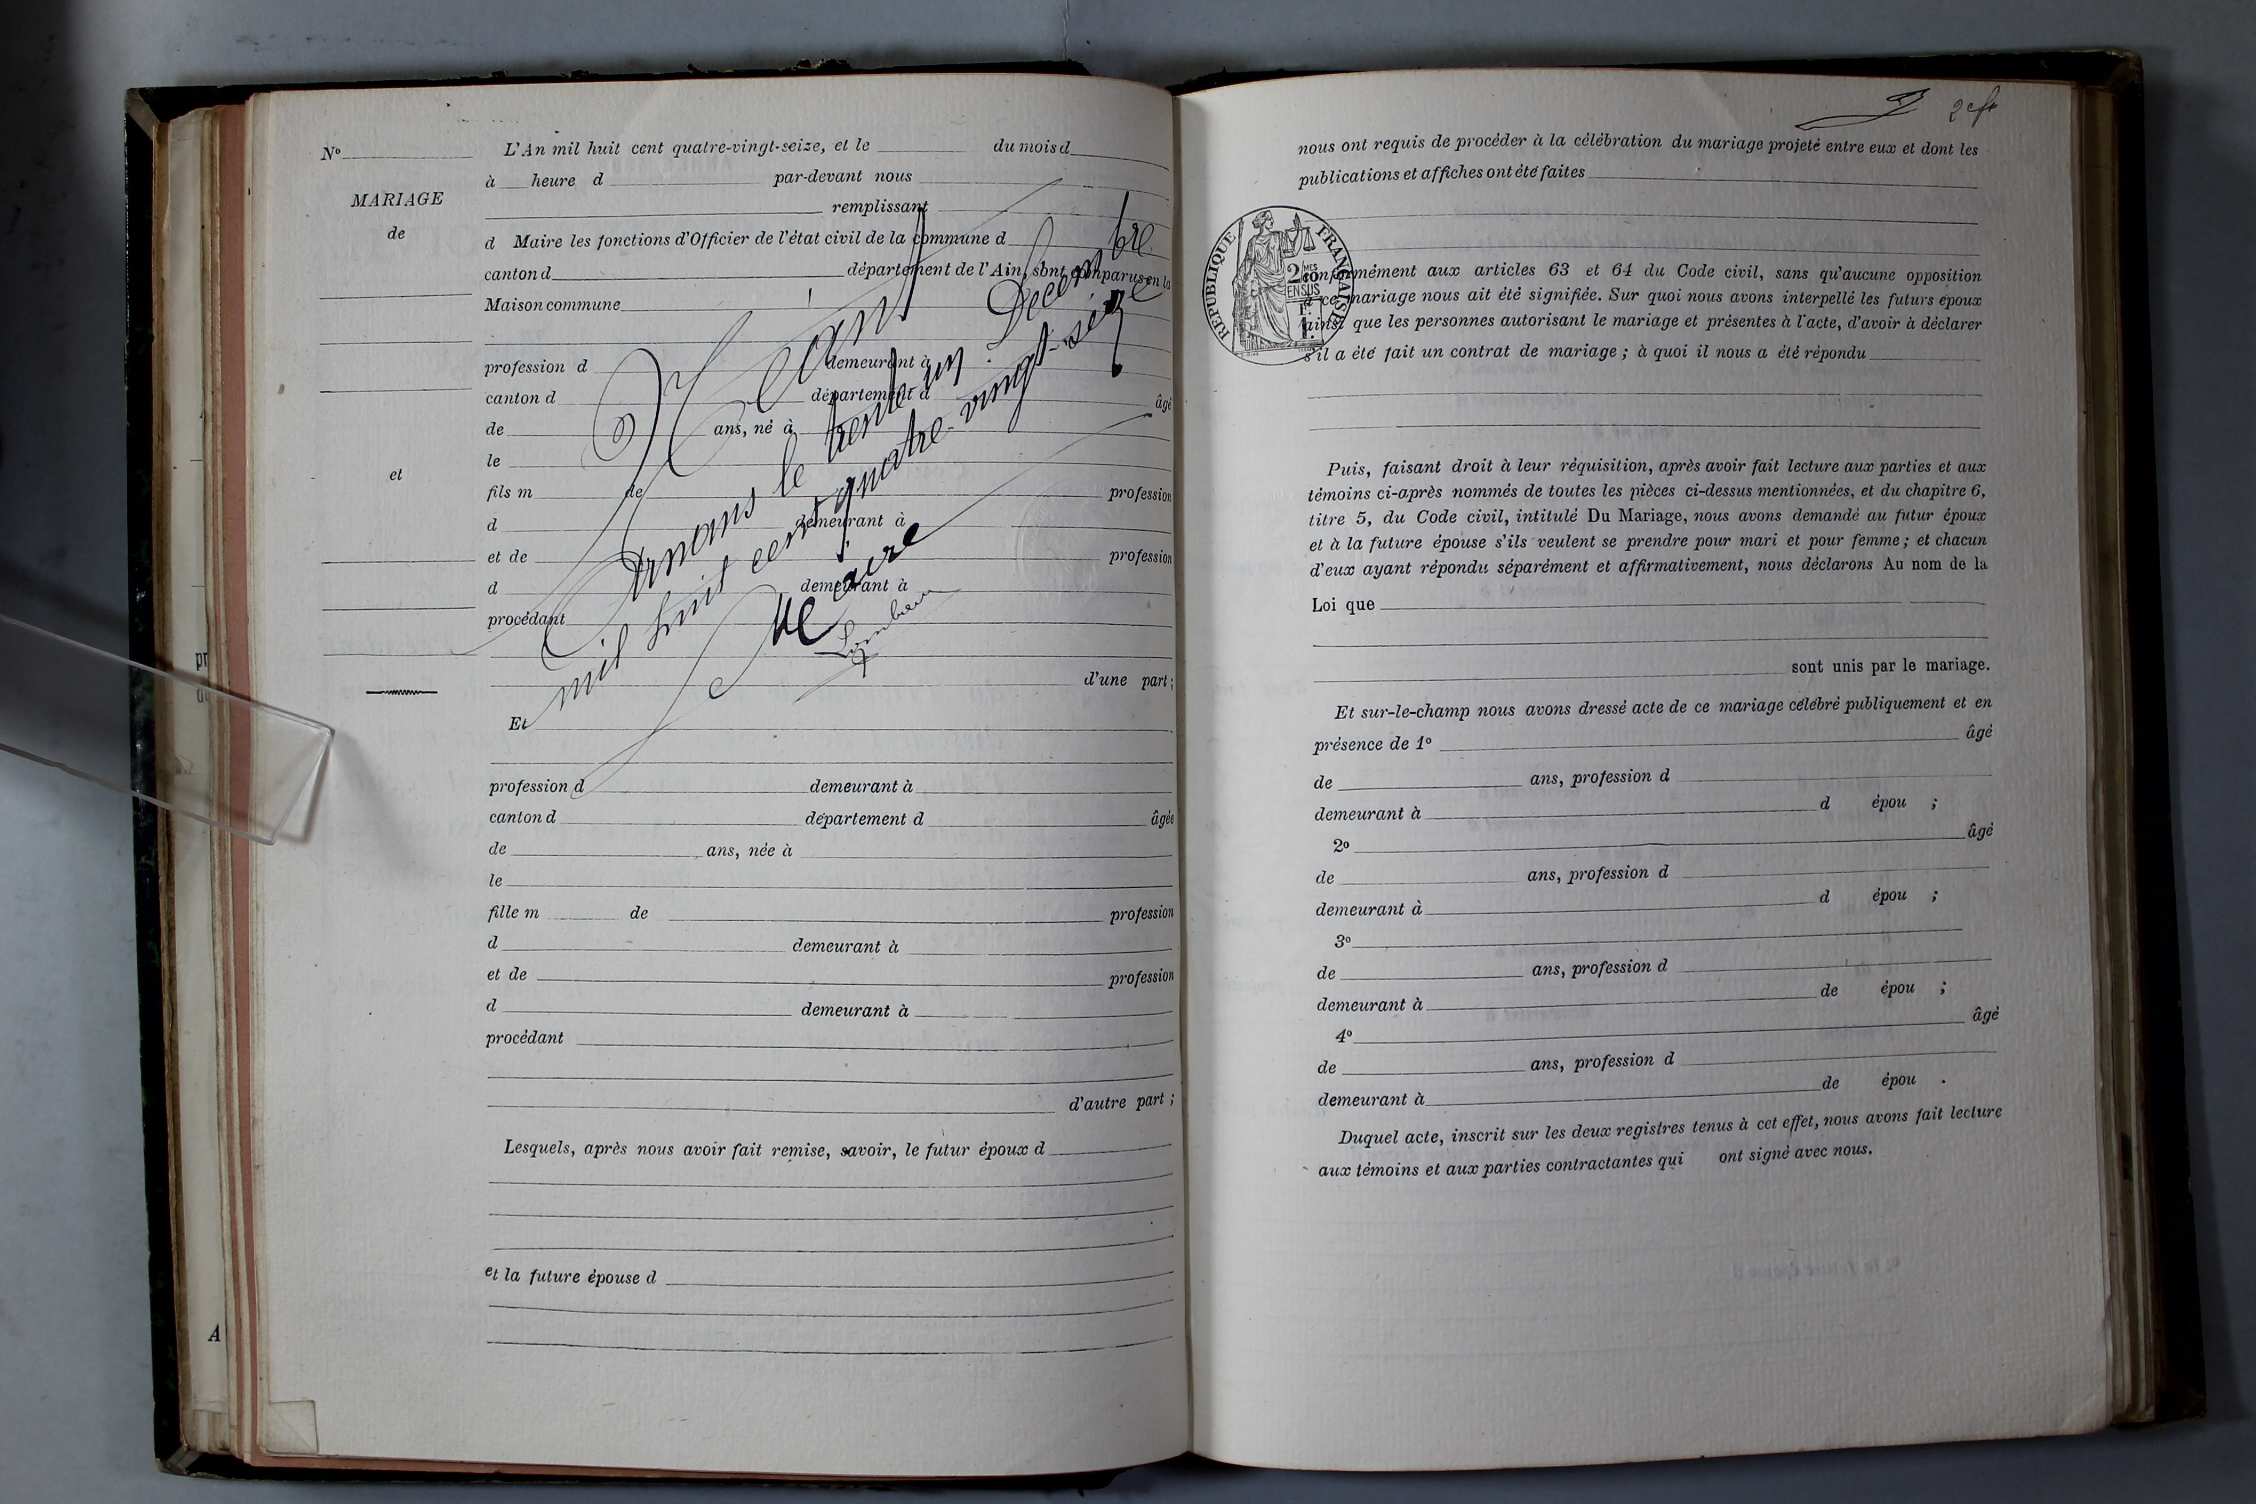 Nº
MARIAGE
de
et
L'An mil huit cent quatre-vingt-seize, et le du mois d
à heure d par-devant nous
remplissant
d Maire les fonctions d'Officier de l'état civil de la commune d
canton d département de l'Ain, sont comparus en la
Maison commune
profession d demeurant à
canton d département d âgé
de ans, né à
le
fils m de profession
d demeurant à
et de profession
d demeurant à
procédant
d'une part ;
Néant
Arnans le trente-un Décembre
mil huit cent quatre-vingt-seize
Le Maire
Et
profession d demeurant à
canton d département d âgée
de ans, née à
le
fille m de profession
d demeurant à
et de profession
d demeurant à
procédant
d'autre part ;
Lesquels, après nous avoir fait remise, savoir, le futur époux d
et la future épouse d
nous ont requis de procéder à la célébration du mariage projeté entre eux et dont les
publications et affiches ont été faites
RÉPUBLIQUE FRANÇAISE
conformément aux articles 63 et 64 du Code civil, sans qu'aucune opposition
à ce mariage nous ait été signifiée. Sur quoi nous avons interpellé les futurs époux
ainsi que les personnes autorisant le mariage et présentes à l'acte, d'avoir à déclarer
s'il a été fait un contrat de mariage ; à quoi il nous a été répondu
Puis, faisant droit à leur réquisition, après avoir fait lecture aux parties et aux
témoins ci-après nommés de toutes les pièces ci-dessus mentionnées, et du chapitre 6,
titre 5, du Code civil, intitulé Du Mariage, nous avons demandé au futur époux
et à la future épouse s'ils veulent se prendre pour mari et pour femme ; et chacun
d'eux ayant répondu séparément et affirmativement, nous déclarons Au nom de la
Loi que
sont unis par le mariage.
Et sur-le-champ nous avons dressé acte de ce mariage célébré publiquement et en
présence de 1º âgé
de ans, profession d
demeurant à d épou ;
2º âgé
de ans, profession d
demeurant à d épou ;
3º
de ans, profession d
demeurant à de épou ;
4º âgé
de ans, profession d
demeurant à de épou .
Duquel acte, inscrit sur les deux registres tenus à cet effet, nous avons fait lecture
aux témoins et aux parties contractantes qui ont signé avec nous.